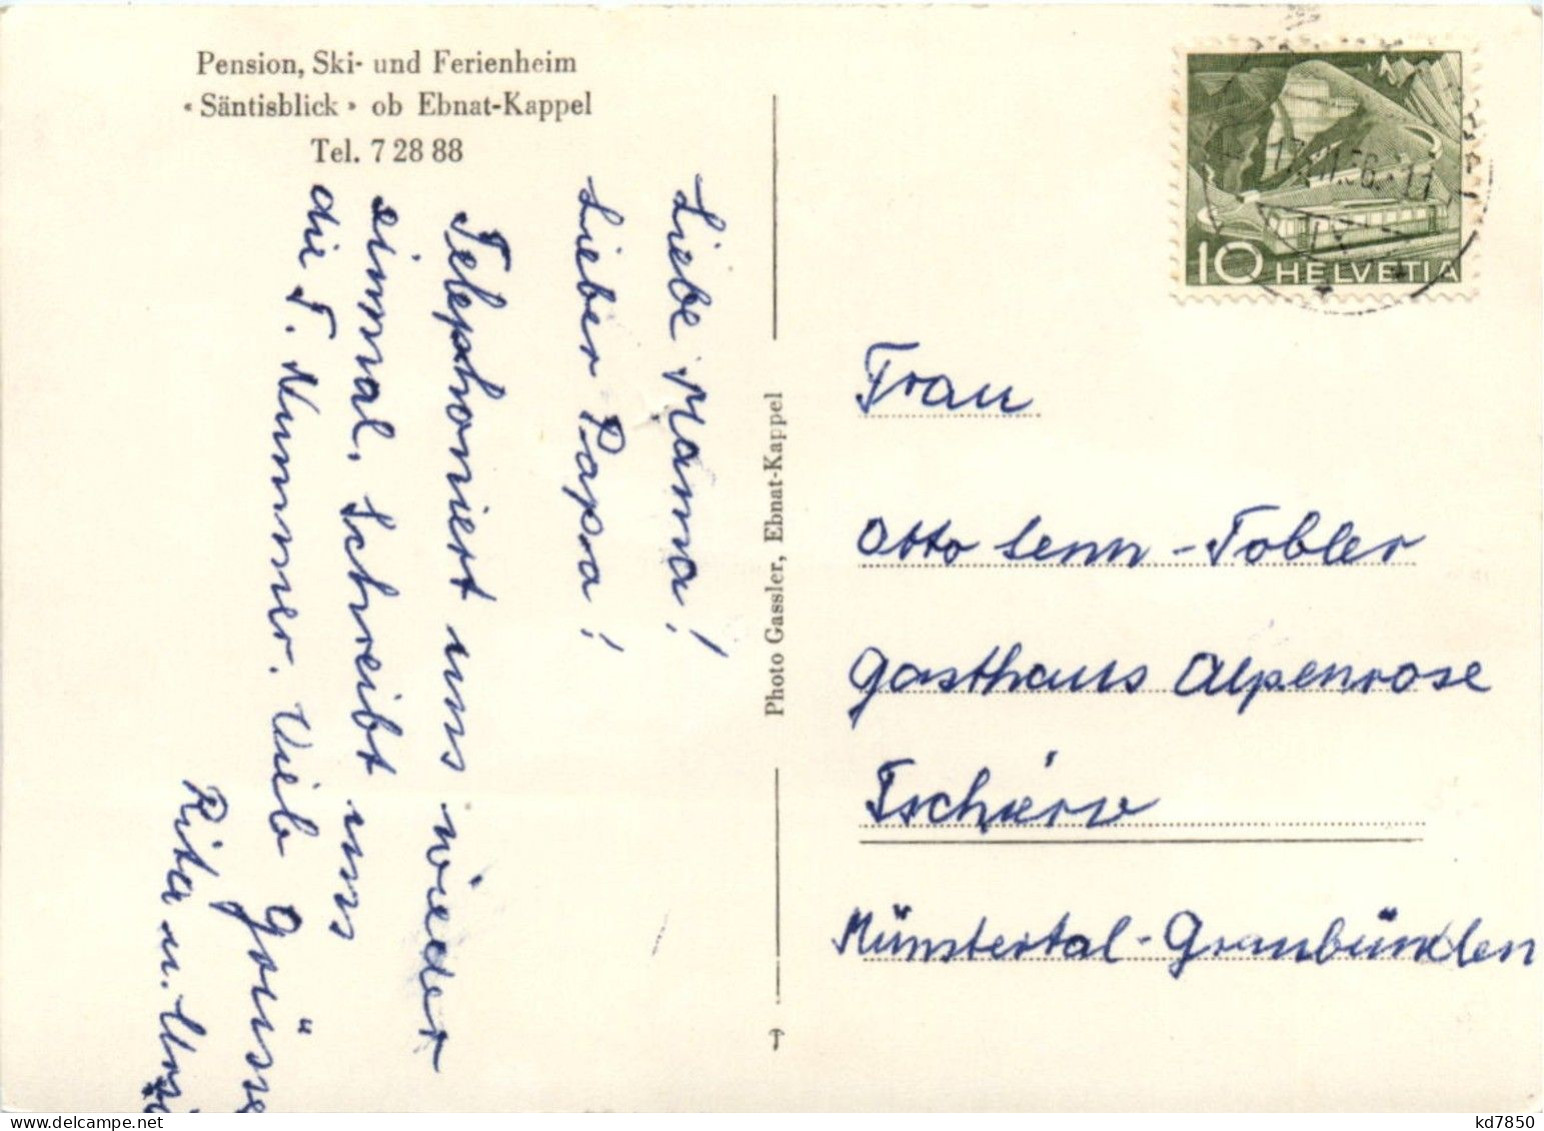 Pension, Ski- und Ferienheim
«Säntisblick» ob Ebnat-Kappel
Tel. 7 28 88
Liebe Mama!
Lieber Papa!
Telephoniert uns wieder
einmal. Schreibt uns
die T. Nummer. Vieb Grüsse
Rita u. Ursi
Photo Gassler, Ebnat-Kappel
10 HELVETIA
Frau
Otto Senn-Tobler
Gasthaus Alpenrose
Tschierv
Münstertal-Graubünden
kd7850